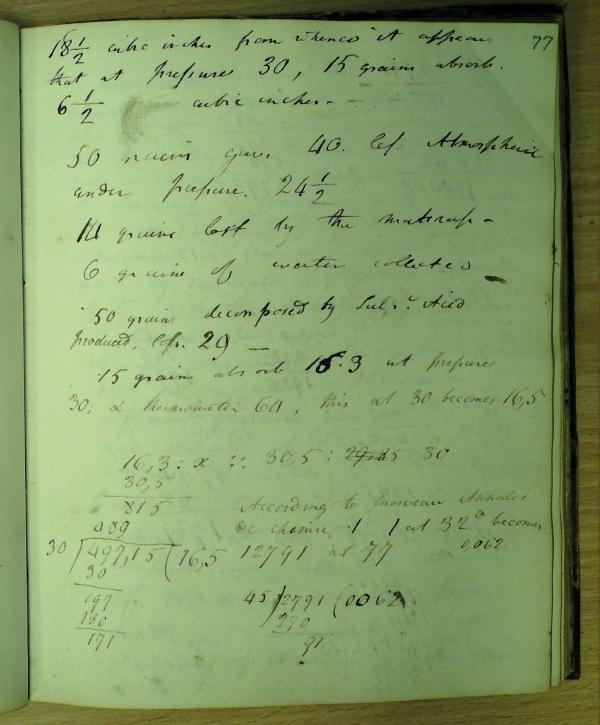 77
18 1/2 cubic inches from whence it appears
that at pressure 30, 15 grains absorb.
6 1/2 grains cubic inches -
50 grains gave 40. Atmospheric
under pressure. 24 1/2
14 grains lost by the
6 grains of water collected
50 grains decomposed by Sulp.c Acid
produced. 29 —
15 grains absorb 16.3 at pressure
30, & thermometer 64, this at 30 becomes 16,5
16,3 : x :: 30,5 : 30
30,5
815
489
30 ) 497,15 ( 16,5
30
197
180
171
According to Morveau Annales
de chemie 1 at 32° becomes
12791 at 77 0,062
45 ) 2791 ( 0062
270
91